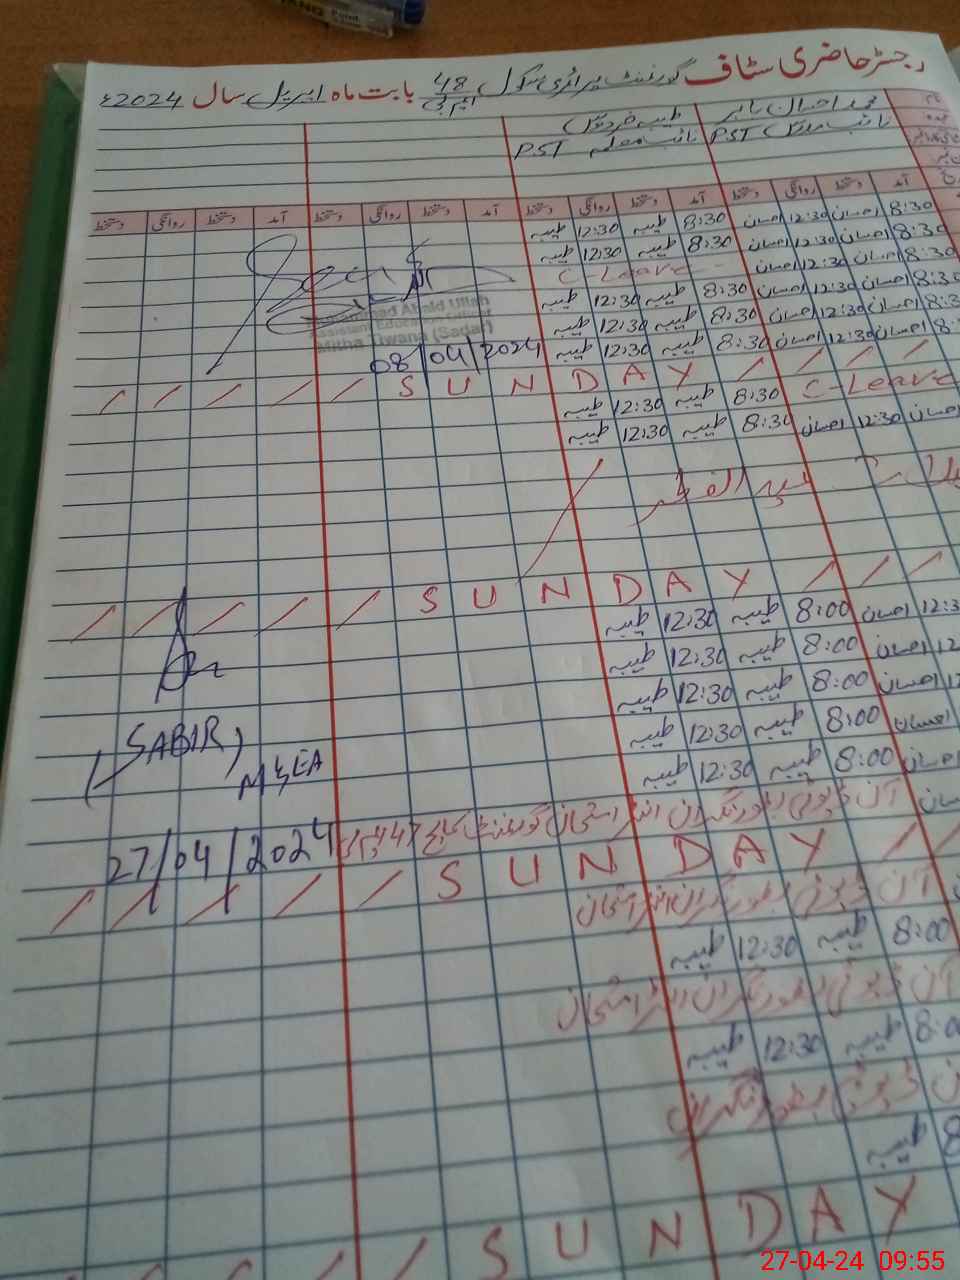 رجسٹر حاضری سٹاف گورنمنٹ پرائمری سکول 48 ایم بی بابت ماہ اپریل سال 2024ء
محمد احسان بابر طیبہ
نائب مدرس PST نائب معلمہ PST
آمد دستخط روانگی دستخط آمد دستخط روانگی دستخط آمد دستخط روانگی دستخط آمد دستخط روانگی دستخط
8:30 احسان 12:30 احسان 8:30 طیبہ 12:30 طیبہ
8:30 احسان 12:30 احسان 8:30 طیبہ 12:30 طیبہ
8:30 احسان 12:30 احسان C-Leave
8:30 احسان 12:30 احسان 8:30 طیبہ 12:30 طیبہ
8:3 احسان 12:30 احسان 8:30 طیبہ 12:30 طیبہ
8: احسان 12:30 احسان 8:30 طیبہ 12:30 طیبہ
Muhammad Abaid Ullah
Assistant Education Officer
Mitha Tiwana (Sadar)
08/04/2024
SUNDAY
C-Leave 8:30 طیبہ 12:30 طیبہ
احسان 12:30 احسان 8:30 طیبہ 12:30 طیبہ
عید الفطر
SUNDAY
12:3 احسان 8:00 طیبہ 12:30 طیبہ
12 احسان 8:00 طیبہ 12:30 طیبہ
12 احسان 8:00 طیبہ 12:30 طیبہ
احسان 8:00 طیبہ 12:30 طیبہ
احسان 8:00 طیبہ 12:30 طیبہ
(SABIR)
M&EA
آن ڈیوٹی بطور نگران انٹر امتحان گورنمنٹ کالج 47
27/04/2024
SUNDAY
آن ڈیوٹی بطور نگران انٹر امتحان
8:00 طیبہ 12:30 طیبہ
آن ڈیوٹی بطور نگران انٹر امتحان
8:00 طیبہ 12:30 طیبہ
ڈیوٹی بطور نگران
8 طیبہ
SUNDAY
27-04-24 09:55